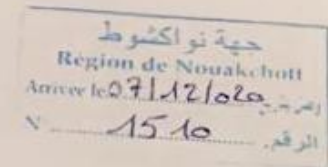 جهة نواكشوط
Région de Nouakchott
Arrivée le 07/12/020
N° 1510 الرقم